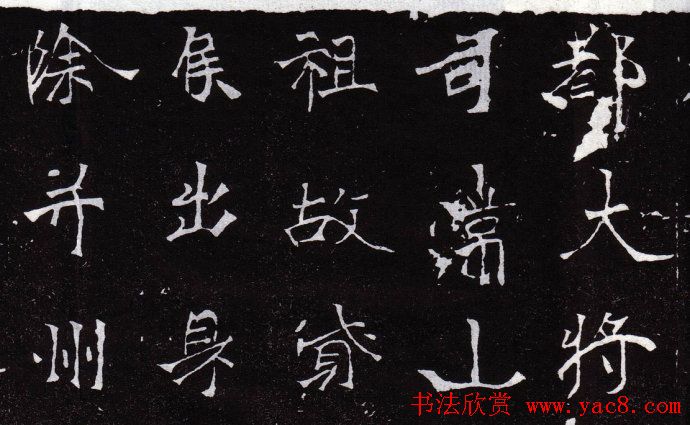 都大将
司常山
祖故
侯出身
除并州
书法欣赏 www.yac8.com